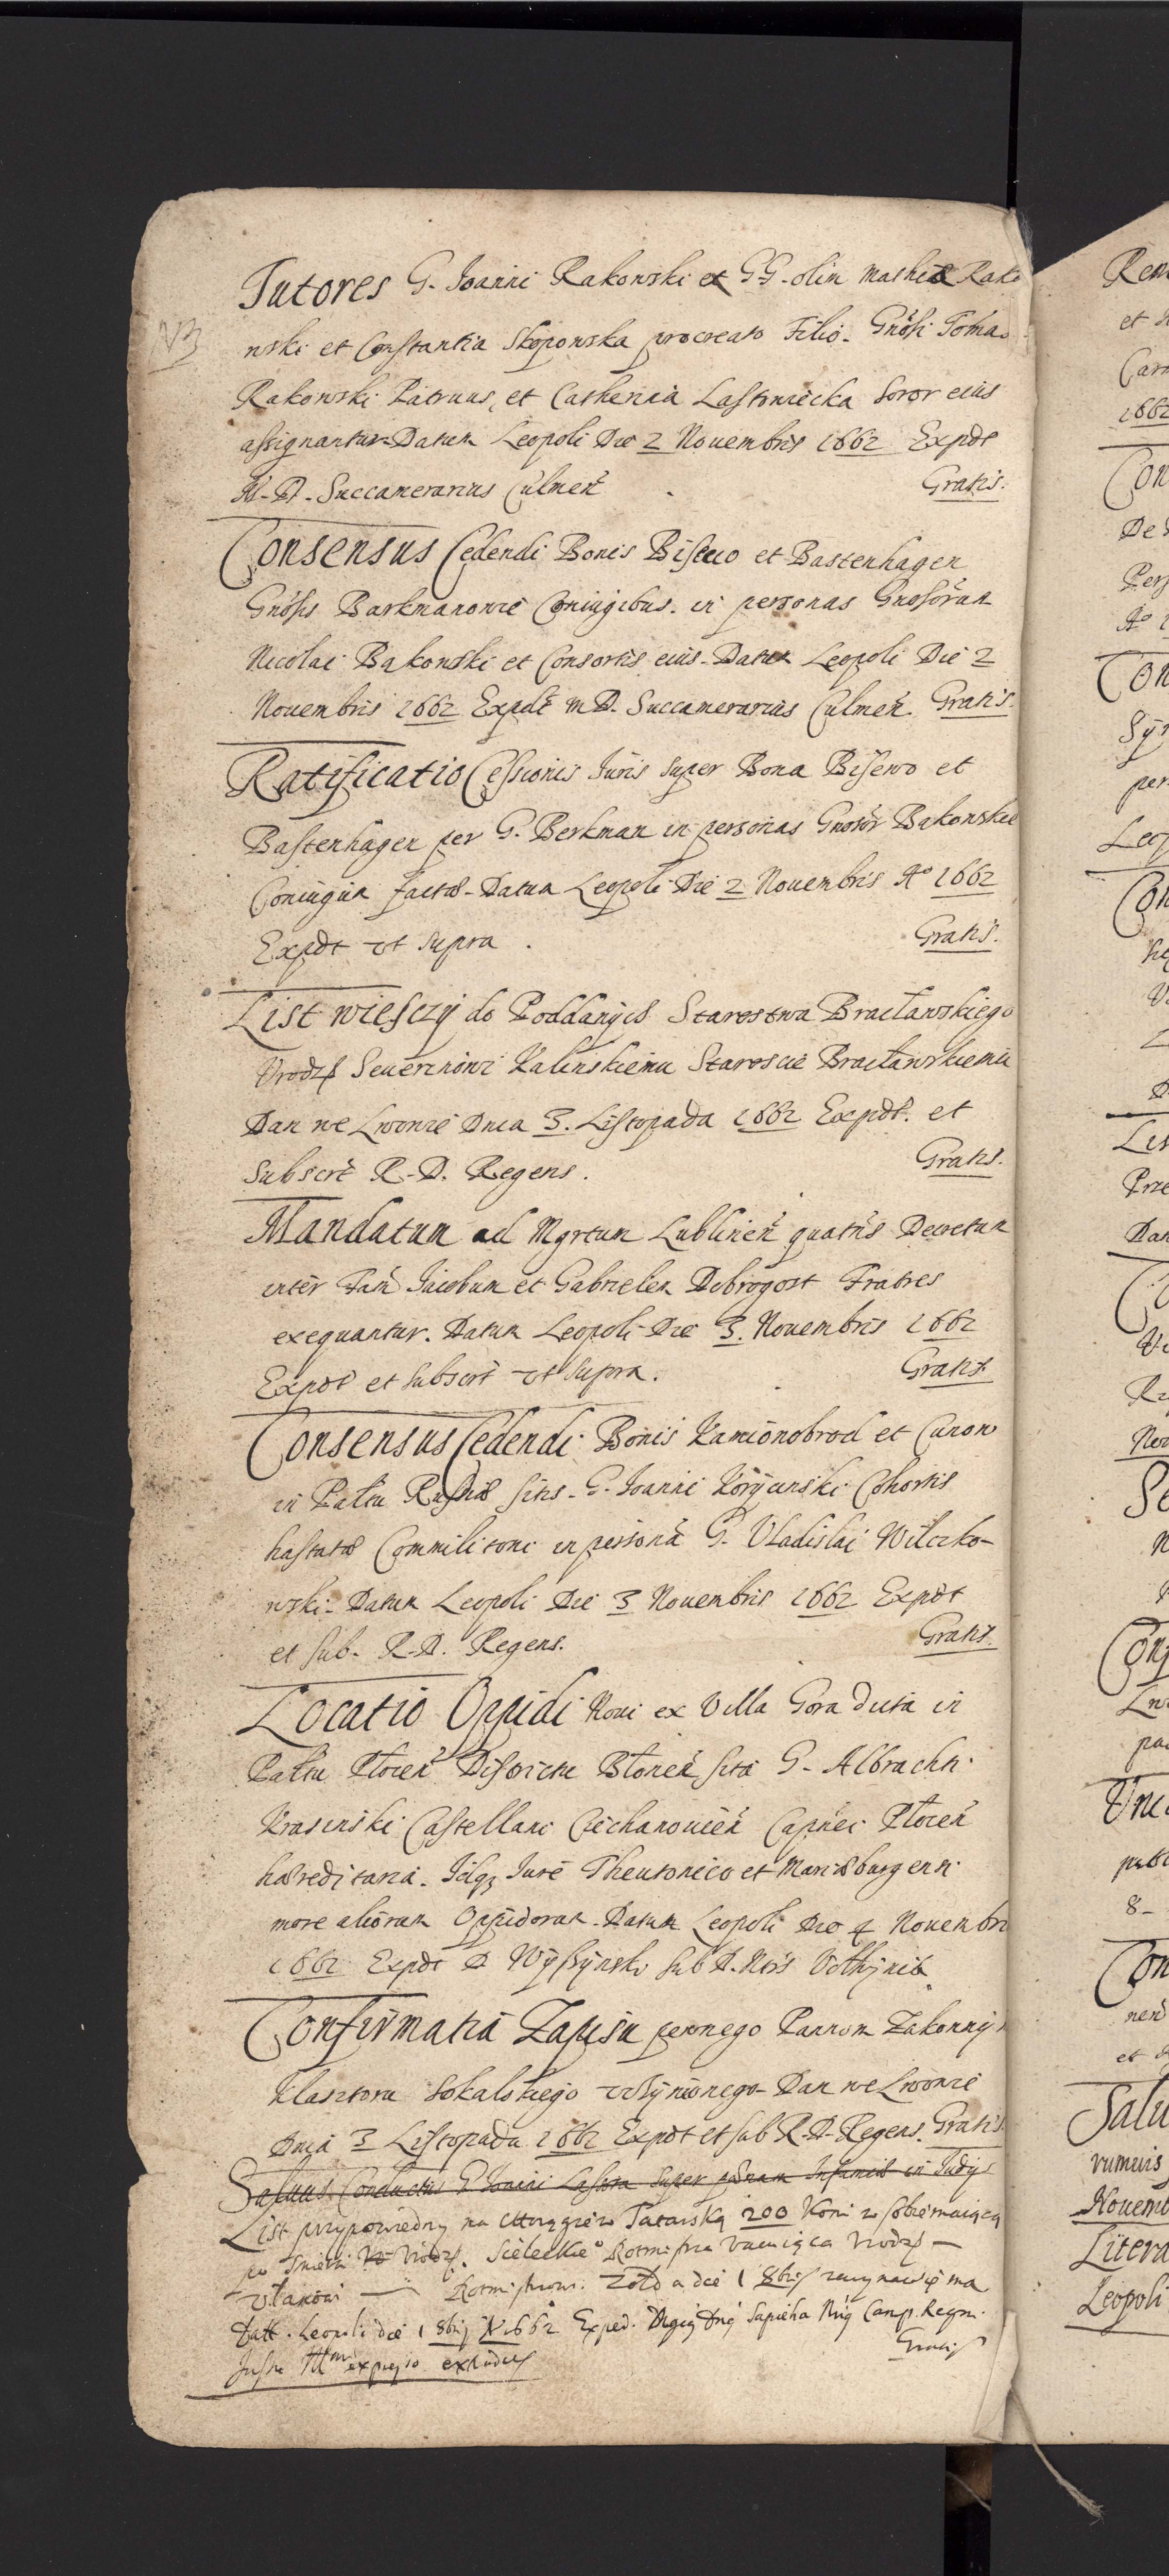 Tutores G. Joanni Rakowski ex GG. olim Mathia Rako
wski et Constantia Skępowska procreato Filio. Gnosi Tomas
NB
Rakowski Patruus, et Catherina Lastowiecka Soror eius
assignantur. Datum Leopoli Die 2 Novembris 1662 Expdt
M. D. Succamerarius Culmen Gratis.
Consensus Cedendi Bonis Bisewo et Bastenhagen
Gnosis Barkmanowie Coniugibus. in personas Gnosorum
Nicolai Bąkowski et Consortis eius. Datum Leopoli Die 2
Novembris 1662 Expdt M D. Succamerarius Culmen. Gratis.
Ratificatio Cessionis Iuris super Bona Bisewo et
Bastenhagen per G. Berkman in personas Gnosor Bakowskie
Coniugum factæ. Datum Leopoli Die 2 Novembris Ao 1662
Expdt vt supra. Gratis.
List wiesczy do Poddanych Starostwa Bracławskiego
Vrodz Severinowi Kalinskiemu Staroscie Bracławskiemu
Dan we Lwowie Dnia 3. Listopada 1662 Expdt. et
Subscrt R. D. Regens. Gratis.
Mandatum ad Mgrtum Lublinen quatns Decretum
inter Fam Jacobum et Gabrielem Dobrogost Fratres
exequantur. Datum Leopoli Die 3. Novembris 1662
Expdt et subscrt vt supra. Gratis.
Consensus Cedendi Bonis Kamionobrod et Cunow
in Paltu Russiæ sitis. G. Joanni Koryciński Cohortis
hastatæ Commilitoni in persona G. Vladislai Wilczko-
wski. Datum Leopoli Die 3 Novembris 1662 Expdt
et sub. R. D. Regens. Gratis.
Locatio Oppidi Novi ex Villa Gora dicta in
Paltu Plocen Districtu Plonen sita G. Albrachti
Krasinski Castellani Ciechanovien Capnei Plocen
hæreditaria. Idqz Iure Theutonico et Mariæburgensi
more aliorum Oppidorum. Datum Leopoli Die 4 Novembri
1662 Expdt D Wyssynski sub D. Nris Volhyniæ
Confirmatia Zapisu pewnego Pannom Zakonnym
Klasztoru Sokalskiego vczynionego. Dan we Lwowie
Dnia 3 Listopadu 1662 Expdt et sub R. D. Regens. Gratis.
Salvus Conductus G Joanni super pœnam Infamiæ in Judys
List przypowiedny na Chorągiew Tatarską 200 koni w sobie maiącą
po smierci Vrodz. Sieleckie° Rotmistrza Vrodz
Vłanowi Rotmistrzowi. Zołd a die 1 8bris zaczynac się ma
Datt. Leopoli die 1 8bris A 1662 Exped. Sapieha Camp. Regni.
Gratis
Jussu expresso
Rem
et
Cam
1662
Con
De
Pers
Ao
Con
Syn
per
Leop
Con
Lis
Prze
Dan
Nov
Conf
Lwo
8-
Con
et
Salu
Novemb
Litera
Leopoli